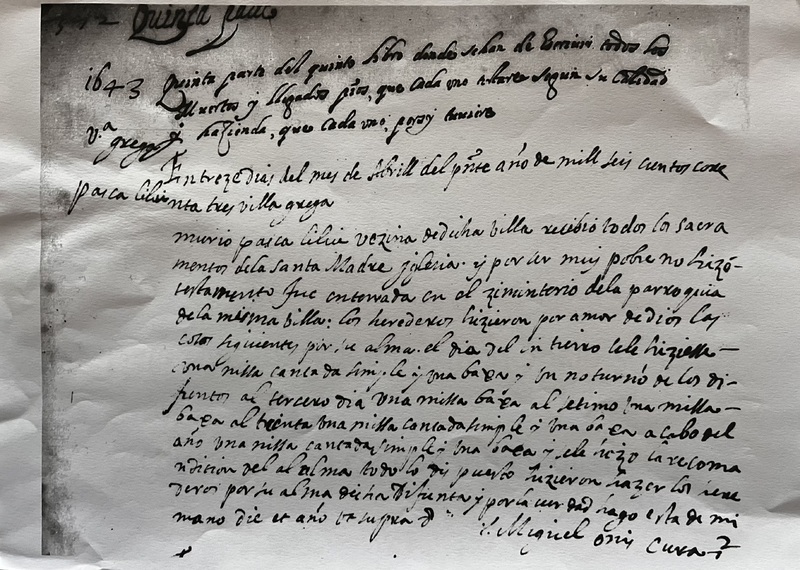 Quinta parte
1643 Quinta parte del quinto libro donde sehan de Escriuir todos los
Muertos y llegados pios, que Cada uno segun su Calidad
v.ª grega y hazienda, que Cada uno, por sy tuuiere
En treze dias del mes de Abrill del pnte año de mill seis cientos coare
pasca nta tres villa grega
murio pasca vezina dedicha villa recibio todos los sacra
mentos dela santa Madre iglesia. y por ser muy pobre no hizo
testamento fue enterrada en el ziminterio dela parroquia
dela misma villa: los herederos hizieron por amor de dios las
cosas siguientes por su alma. el dia del intierro sele hiziesse
una missa cantada simple y una baxa y un noturno de los di-
funtos al tercero dia una missa baxa al setimo una missa
baxa al treinta una missa cantada simple y una baxa a cabo del
año una missa cantada simple y una baxa y sele hizo la recoma
ndicion del al alma todo lo dis puesto hizieron hazer los here
deros por su alma dicha Difunta y por la uerdad hago esta de mi
mano die et año ut supra
Miguel Cura